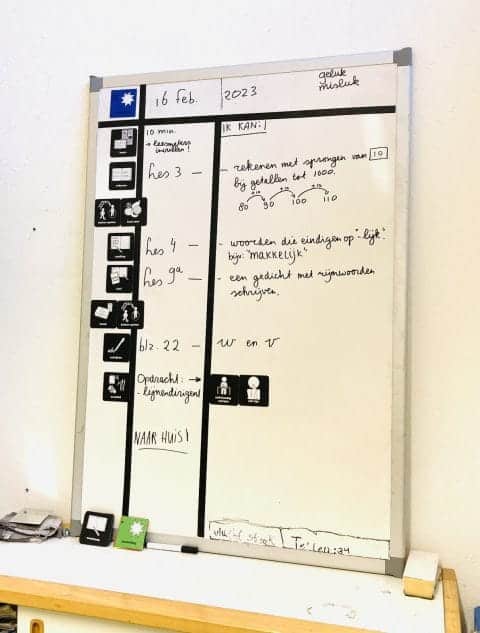 16 feb. 2023
geluk
misluk
10 min.
IK KAN:
→ leesmeters
invullen!
les 3 — - rekenen met sprongen van 10
bij getallen tot 1000.
+10 +10 +10
80 90 100 110
les 4 — - woorden die eindigen op "-lijk".
bijv: "makkelijk"
les 9a — - een gedicht met rijmwoorden
schrijven.
blz. 22 — - w en v
Opdracht: →
NAAR HUIS!